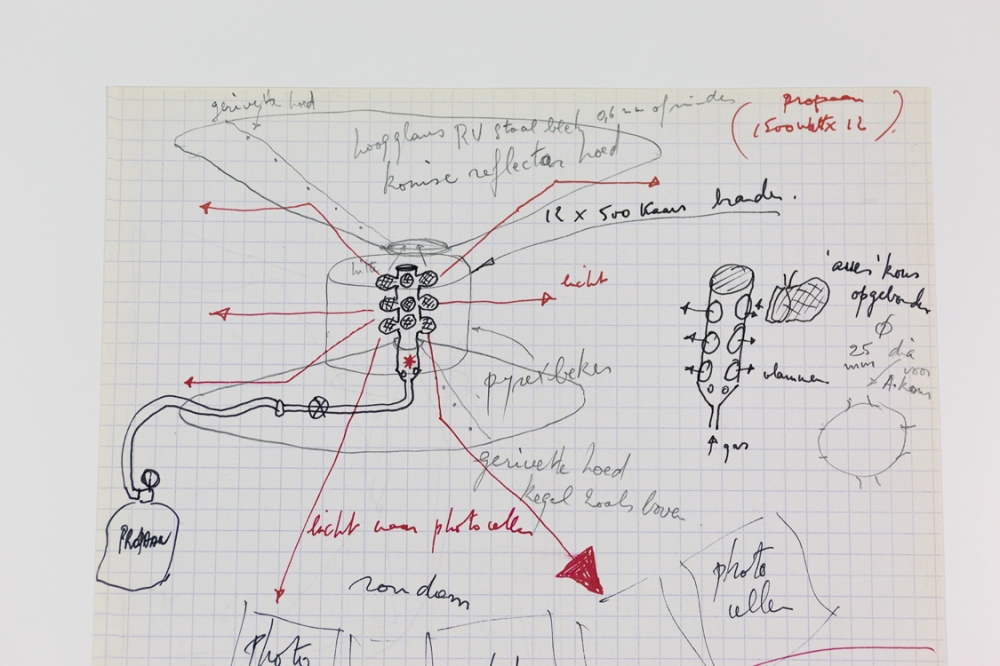 gerivette hoed
hoogglans RV staal blek 0,6 mm of minder
konise reflector hoed
propaan
1500 watt x 12
12 x 500 Kaars brander.
licht
'auer' kous
opgebonden
Ø
25 dia
mm voor
A. kous
vlammen
gas
pyrexbeker
gerivette hoed
kegel zoals boven
PROPAAN
licht naar photocellen
rondom
photo
cellen
Photo